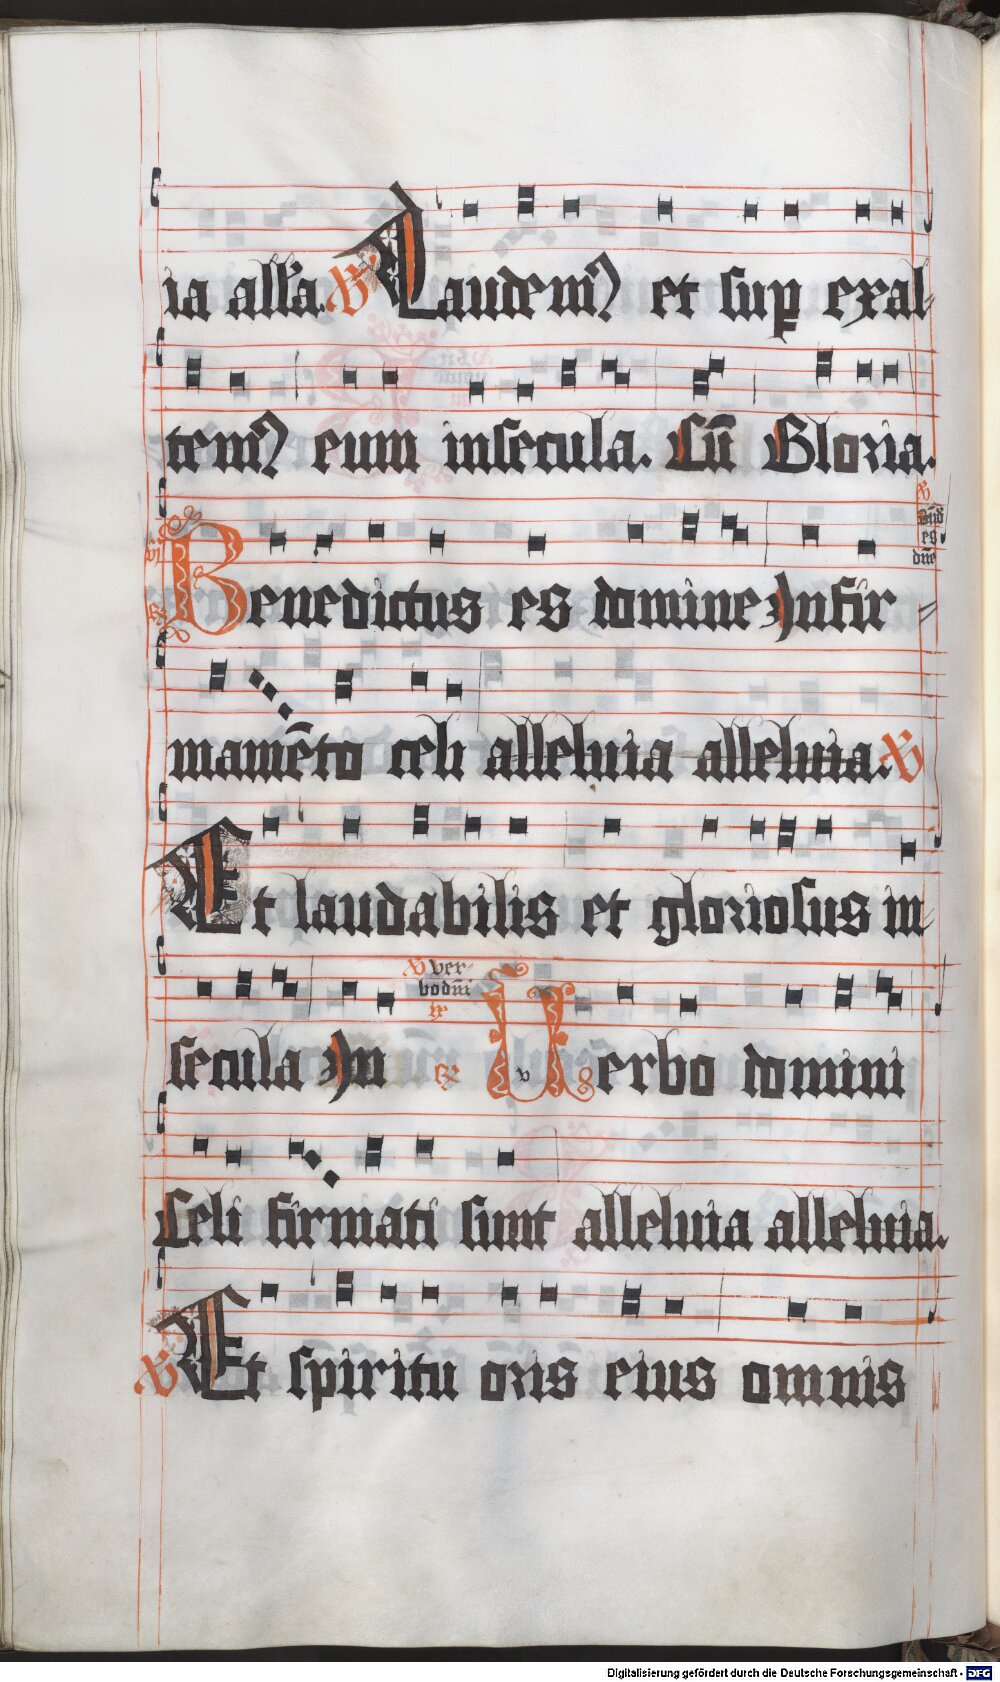 ia all'a. ℣ Laudemꝰ et sup exal
temꝰ eum insecula. Cū Gloria.
℣ Bn̄d es dn̄e
vi. ℟ Benedictus es domine Infir
mamēto celi alleluia alleluia. ℣
Et laudabilis et gloriosus in
℣ verbo dn̄i
secula In Verbo domini
Celi firmati sunt alleluia alleluia.
℣ Et spiritu oris eius omnis
Digitalisierung gefördert durch die Deutsche Forschungsgemeinschaft - DFG